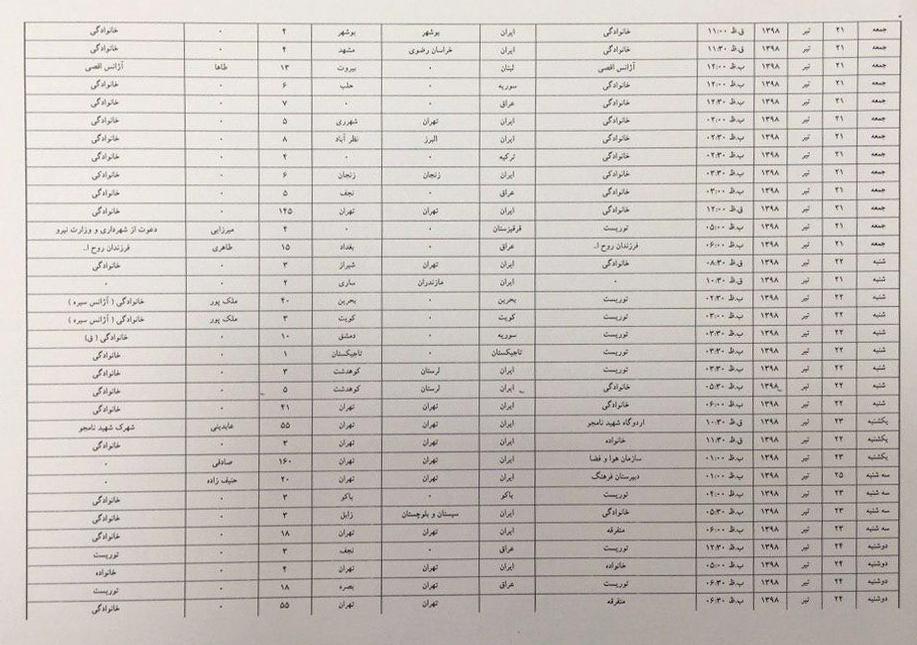 جمعه ۲۱ تیر ۱۳۹۸ ق.ظ ۱۱:۰۰ خانوادگی ایران بوشهر بوشهر ۴ ۰ خانوادگی
جمعه ۲۱ تیر ۱۳۹۸ ق.ظ ۱۱:۳۰ خانوادگی ایران خراسان رضوی مشهد ۴ ۰ خانوادگی
جمعه ۲۱ تیر ۱۳۹۸ ب.ظ ۱۲:۰۰ آژانس اقصی لبنان ۰ بیروت ۱۳ طاها آژانس اقصی
جمعه ۲۱ تیر ۱۳۹۸ ب.ظ ۱۲:۰۰ خانوادگی سوریه ۰ حلب ۶ ۰ خانوادگی
جمعه ۲۱ تیر ۱۳۹۸ ب.ظ ۱۲:۳۰ خانوادگی عراق ۰ ۰ ۷ ۰ خانوادگی
جمعه ۲۱ تیر ۱۳۹۸ ب.ظ ۰۲:۰۰ خانوادگی ایران تهران شهرری ۵ ۰ خانوادگی
جمعه ۲۱ تیر ۱۳۹۸ ب.ظ ۰۲:۳۰ خانوادگی ایران البرز نظر آباد ۸ ۰ خانوادگی
جمعه ۲۱ تیر ۱۳۹۸ ب.ظ ۰۲:۳۰ خانوادگی ترکیه ۰ ۰ ۲ ۰ خانوادگی
جمعه ۲۱ تیر ۱۳۹۸ ب.ظ ۰۳:۳۰ خانوادگی ایران زنجان زنجان ۶ ۰ خانوادگی
جمعه ۲۱ تیر ۱۳۹۸ ب.ظ خانوادگی عراق ۰ نجف ۵ ۰ خانوادگی
جمعه ۲۱ تیر ۱۳۹۸ ق.ظ ۱۲:۰۰ خانوادگی ایران تهران تهران ۱۴۵ ۰ خانوادگی
جمعه ۲۱ تیر ۱۳۹۸ ب.ظ ۰۵:۰۰ توریست قرقیزستان ۰ ۰ ۴ میرزایی دعوت از شهرداری و وزارت نیرو
جمعه ۲۱ تیر ۱۳۹۸ ب.ظ ۰۶:۰۰ فرزندان روح ا.. عراق ۰ بغداد ۱۵ طاهری فرزندان روح ا..
شنبه ۲۲ تیر ۱۳۹۸ ق.ظ ۰۸:۳۰ خانوادگی ایران تهران شیراز ۳ ۰ خانوادگی
شنبه ۲۱ تیر ۱۳۹۸ ق.ظ ۱۰:۳۰ ۰ ایران مازندران ساری ۲ ۰ ۰
شنبه ۲۲ تیر ۱۳۹۸ ب.ظ ۰۲:۳۰ توریست بحرین ۰ بحرین ۴۰ ملک پور خانوادگی ( آژانس سیره )
شنبه ۲۲ تیر ۱۳۹۸ ب.ظ ۰۳:۰۰ توریست کویت ۰ کویت ۳ ملک پور خانوادگی ( آژانس سیره )
شنبه ۲۲ تیر ۱۳۹۸ ب.ظ ۰۳:۳۰ توریست سوریه ۰ دمشق ۱۰ ۰ خانوادگی ( ق)
شنبه ۲۲ تیر ۱۳۹۸ ب.ظ توریست تاجیکستان ۰ تاجیکستان ۱ ۰ خانوادگی
شنبه ۲۲ تیر ۱۳۹۸ ب.ظ ۰۳:۳۰ توریست ایران لرستان کوهدشت ۳ ۰ خانوادگی
شنبه ۲۲ تیر ۱۳۹۸ ب.ظ ۰۵:۳۰ خانوادگی ایران لرستان کوهدشت ۵ ۰ خانوادگی
شنبه ۲۲ تیر ۱۳۹۸ ب.ظ ۰۶:۰۰ خانوادگی ایران تهران تهران ۴۱ ۰ خانوادگی
یکشنبه ۲۳ تیر ۱۳۹۸ ق.ظ ۱۰:۳۰ اردوگاه شهید نامجو ایران تهران تهران ۵۵ عابدینی شهرک شهید نامجو
یکشنبه ۲۲ تیر ۱۳۹۸ ق.ظ ۱۱:۳۰ خانواده ایران تهران تهران ۳ ۰ خانوادگی
یکشنبه ۲۳ تیر ۱۳۹۸ ب.ظ ۰۱:۰۰ سازمان هوا و فضا ایران تهران تهران ۱۶۰ صادقی ۰
سه شنبه ۲۵ تیر ۱۳۹۸ ب.ظ ۰۱:۰۰ دبیرستان فرهنگ ایران تهران تهران ۲۰ حنیف زاده ۰
سه شنبه ۲۳ تیر ۱۳۹۸ ب.ظ ۰۴:۰۰ توریست باکو ۰ باکو ۳ ۰ خانوادگی
سه شنبه ۲۳ تیر ۱۳۹۸ ب.ظ ۰۵:۳۰ خانوادگی ایران سیستان و بلوچستان زابل ۳ ۰ خانوادگی
سه شنبه ۲۳ تیر ۱۳۹۸ ب.ظ ۰۶:۰۰ متفرقه ایران تهران تهران ۱۸ ۰ خانوادگی
دوشنبه ۲۴ تیر ۱۳۹۸ ب.ظ ۱۲:۳۰ توریست عراق ۰ نجف ۳ ۰ توریست
دوشنبه ۲۴ تیر ۱۳۹۸ ب.ظ ۰۵:۰۰ خانواده ایران تهران تهران ۴ ۰ خانواده
دوشنبه ۲۴ تیر ۱۳۹۸ ب.ظ ۰۶:۳۰ توریست عراق تهران بصره ۱۸ ۰ توریست
دوشنبه ۲۴ تیر ۱۳۹۸ ب.ظ ۰۶:۳۰ متفرقه تهران تهران ۵۵ ۰ خانوادگی